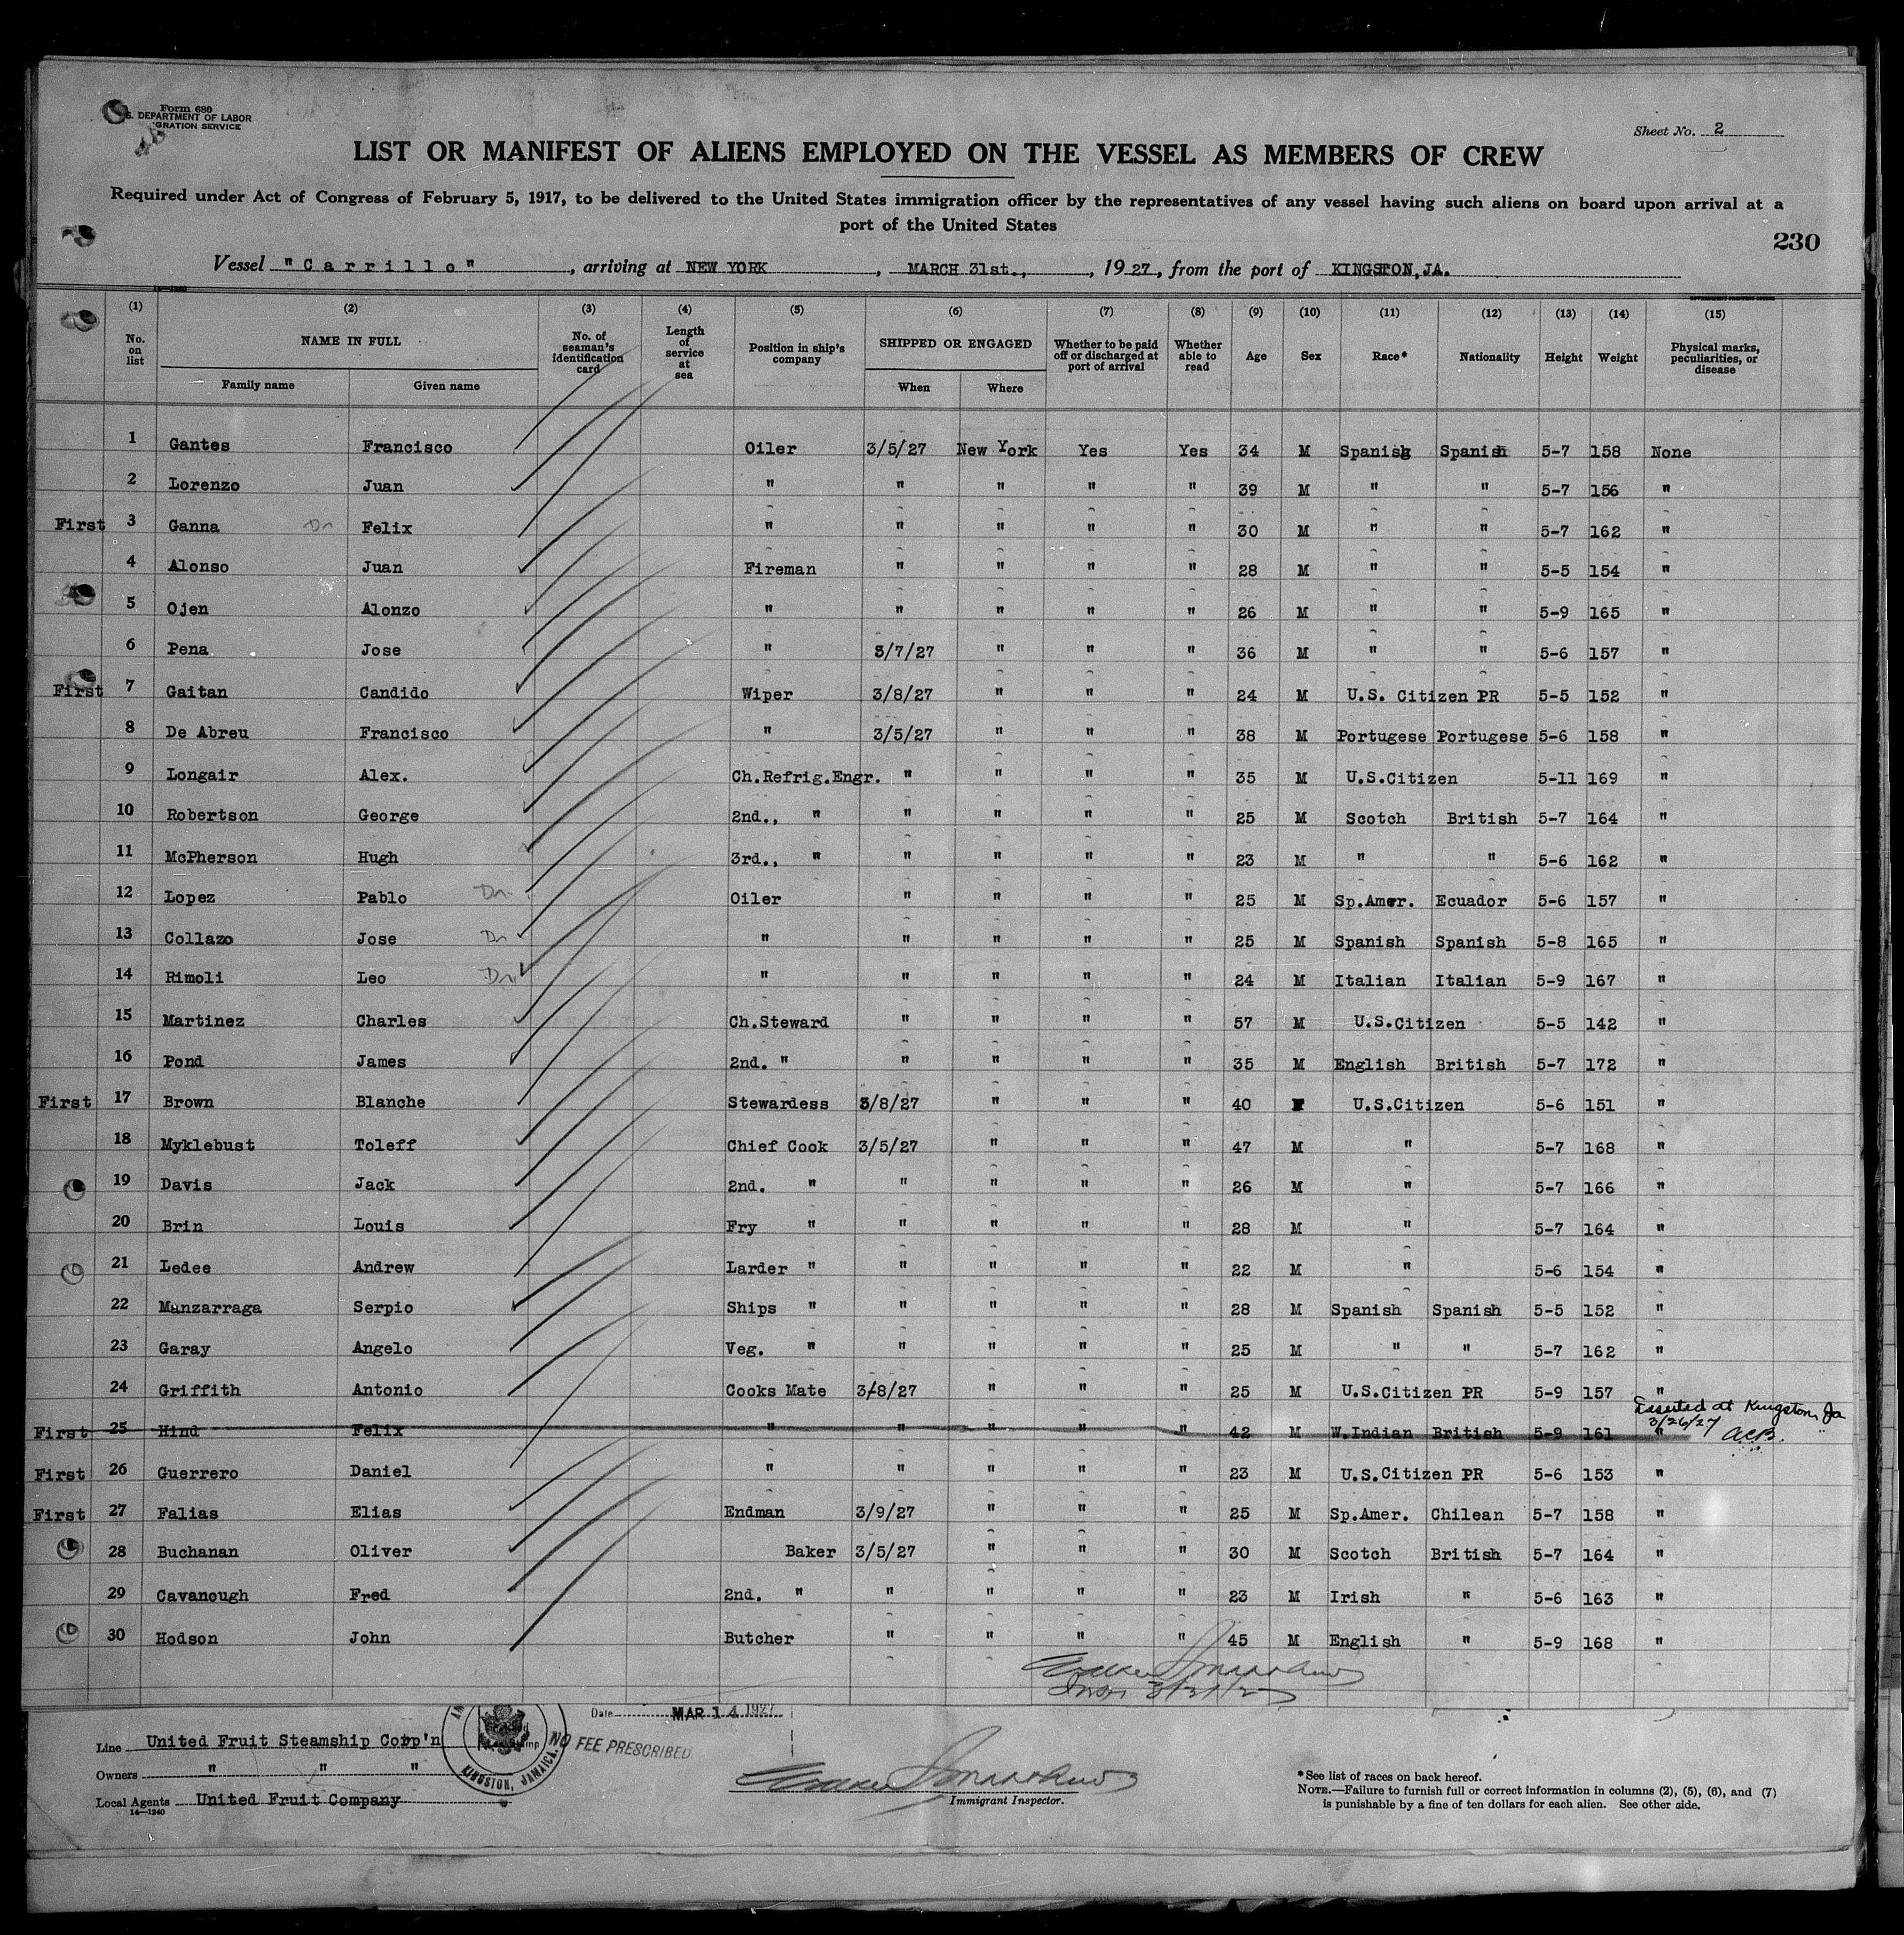 Form 680
S. DEPARTMENT OF LABOR
IGRATION SERVICE
Sheet No. 2
LIST OR MANIFEST OF ALIENS EMPLOYED ON THE VESSEL AS MEMBERS OF CREW
Required under Act of Congress of February 5, 1917, to be delivered to the United States immigration officer by the representatives of any vessel having such aliens on board upon arrival at a
port of the United States
230
Vessel "Carrillo", arriving at NEW YORK, MARCH 31st., 1927, from the port of KINGSTON, JA.
(1) (2) (3) (4) (5) (6) (7) (8) (9) (10) (11) (12) (13) (14) (15)
No. on list NAME IN FULL Family name Given name No. of seaman's identification card Length of service at sea Position in ship's company SHIPPED OR ENGAGED When Where Whether to be paid off or discharged at port of arrival Whether able to read Age Sex Race* Nationality Height Weight Physical marks, peculiarities, or disease
1 Gantes Francisco Oiler 3/5/27 New York Yes Yes 34 M Spanish Spanish 5-7 158 None
2 Lorenzo Juan " " " " " 39 M " " 5-7 156 "
First 3 Ganna Dn Felix " " " " " 30 M " " 5-7 162 "
4 Alonso Juan Fireman " " " " 28 M " " 5-5 154 "
5 Ojen Alonzo " " " " " 26 M " " 5-9 165 "
6 Pena Jose " 3/7/27 " " " 36 M " " 5-6 157 "
First 7 Gaitan Candido Wiper 3/8/27 " " " 24 M U.S. Citizen PR 5-5 152 "
8 De Abreu Francisco " 3/5/27 " " " 38 M Portugese Portugese 5-6 158 "
9 Longair Alex. Ch.Refrig.Engr. " " " " 35 M U.S.Citizen 5-11 169 "
10 Robertson George 2nd., " " " " " 25 M Scotch British 5-7 164 "
11 McPherson Hugh 3rd., " " " " " 23 M " " 5-6 162 "
12 Lopez Pablo Dn. Oiler " " " " 25 M Sp.Amer. Ecuador 5-6 157 "
13 Collazo Jose Dn " " " " " 25 M Spanish Spanish 5-8 165 "
14 Rimoli Leo Dn " " " " " 24 M Italian Italian 5-9 167 "
15 Martinez Charles Ch.Steward " " " " 57 M U.S.Citizen 5-5 142 "
16 Pond James 2nd. " " " " " 35 M English British 5-7 172 "
First 17 Brown Blanche Stewardess 3/8/27 " " " 40 F U.S.Citizen 5-6 151 "
18 Myklebust Toleff Chief Cook 3/5/27 " " " 47 M " 5-7 168 "
19 Davis Jack 2nd. " " " " " 26 M " 5-7 166 "
20 Brin Louis Fry " " " " " 28 M " 5-7 164 "
21 Ledee Andrew Larder " " " " " 22 M " 5-6 154 "
22 Manzarraga Serpio Ships " " " " " 28 M Spanish Spanish 5-5 152 "
23 Garay Angelo Veg. " " " " " 25 M " " 5-7 162 "
24 Griffith Antonio Cooks Mate 3/8/27 " " " 25 M U.S.Citizen PR 5-9 157 "
Deserted at Kingston, Ja
3/26/27 ACB.
First 25 Hind Felix " " " " " 42 M W.Indian British 5-9 161 "
First 26 Guerrero Daniel " " " " " 23 M U.S.Citizen PR 5-6 153 "
First 27 Falias Elias Endman 3/9/27 " " " 25 M Sp.Amer. Chilean 5-7 158 "
28 Buchanan Oliver Baker 3/5/27 " " " 30 M Scotch British 5-7 164 "
29 Cavanough Fred 2nd. " " " " " 23 M Irish " 5-6 163 "
30 Hodson John Butcher " " " " 45 M English " 5-9 168 "
Date MAR 14 1927
NO FEE PRESCRIBED
KINGSTON, JAMAICA.
Line United Fruit Steamship Corp'n
Owners " " "
Local Agents United Fruit Company
14-1240
Immigrant Inspector.
*See list of races on back hereof.
NOTE.—Failure to furnish full or correct information in columns (2), (5), (6), and (7)
is punishable by a fine of ten dollars for each alien. See other side.